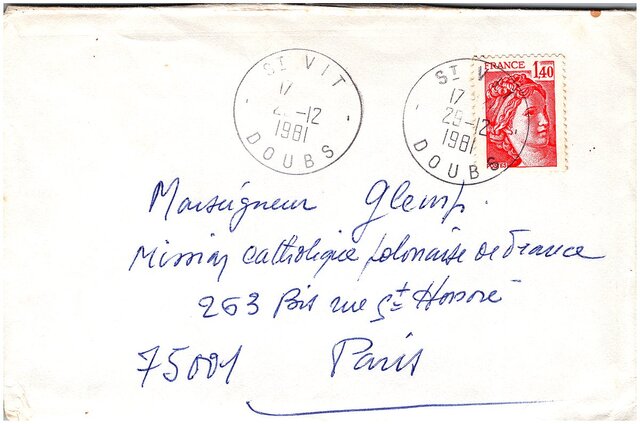 ST VIT
17
29-12
1981
DOUBS
ST V
17
29-12
1981
DOUBS
FRANCE
1,40
Monseigneur Glemp.
Mission Catholique polonaise de France
263 Bis rue St Honoré
75001 Paris